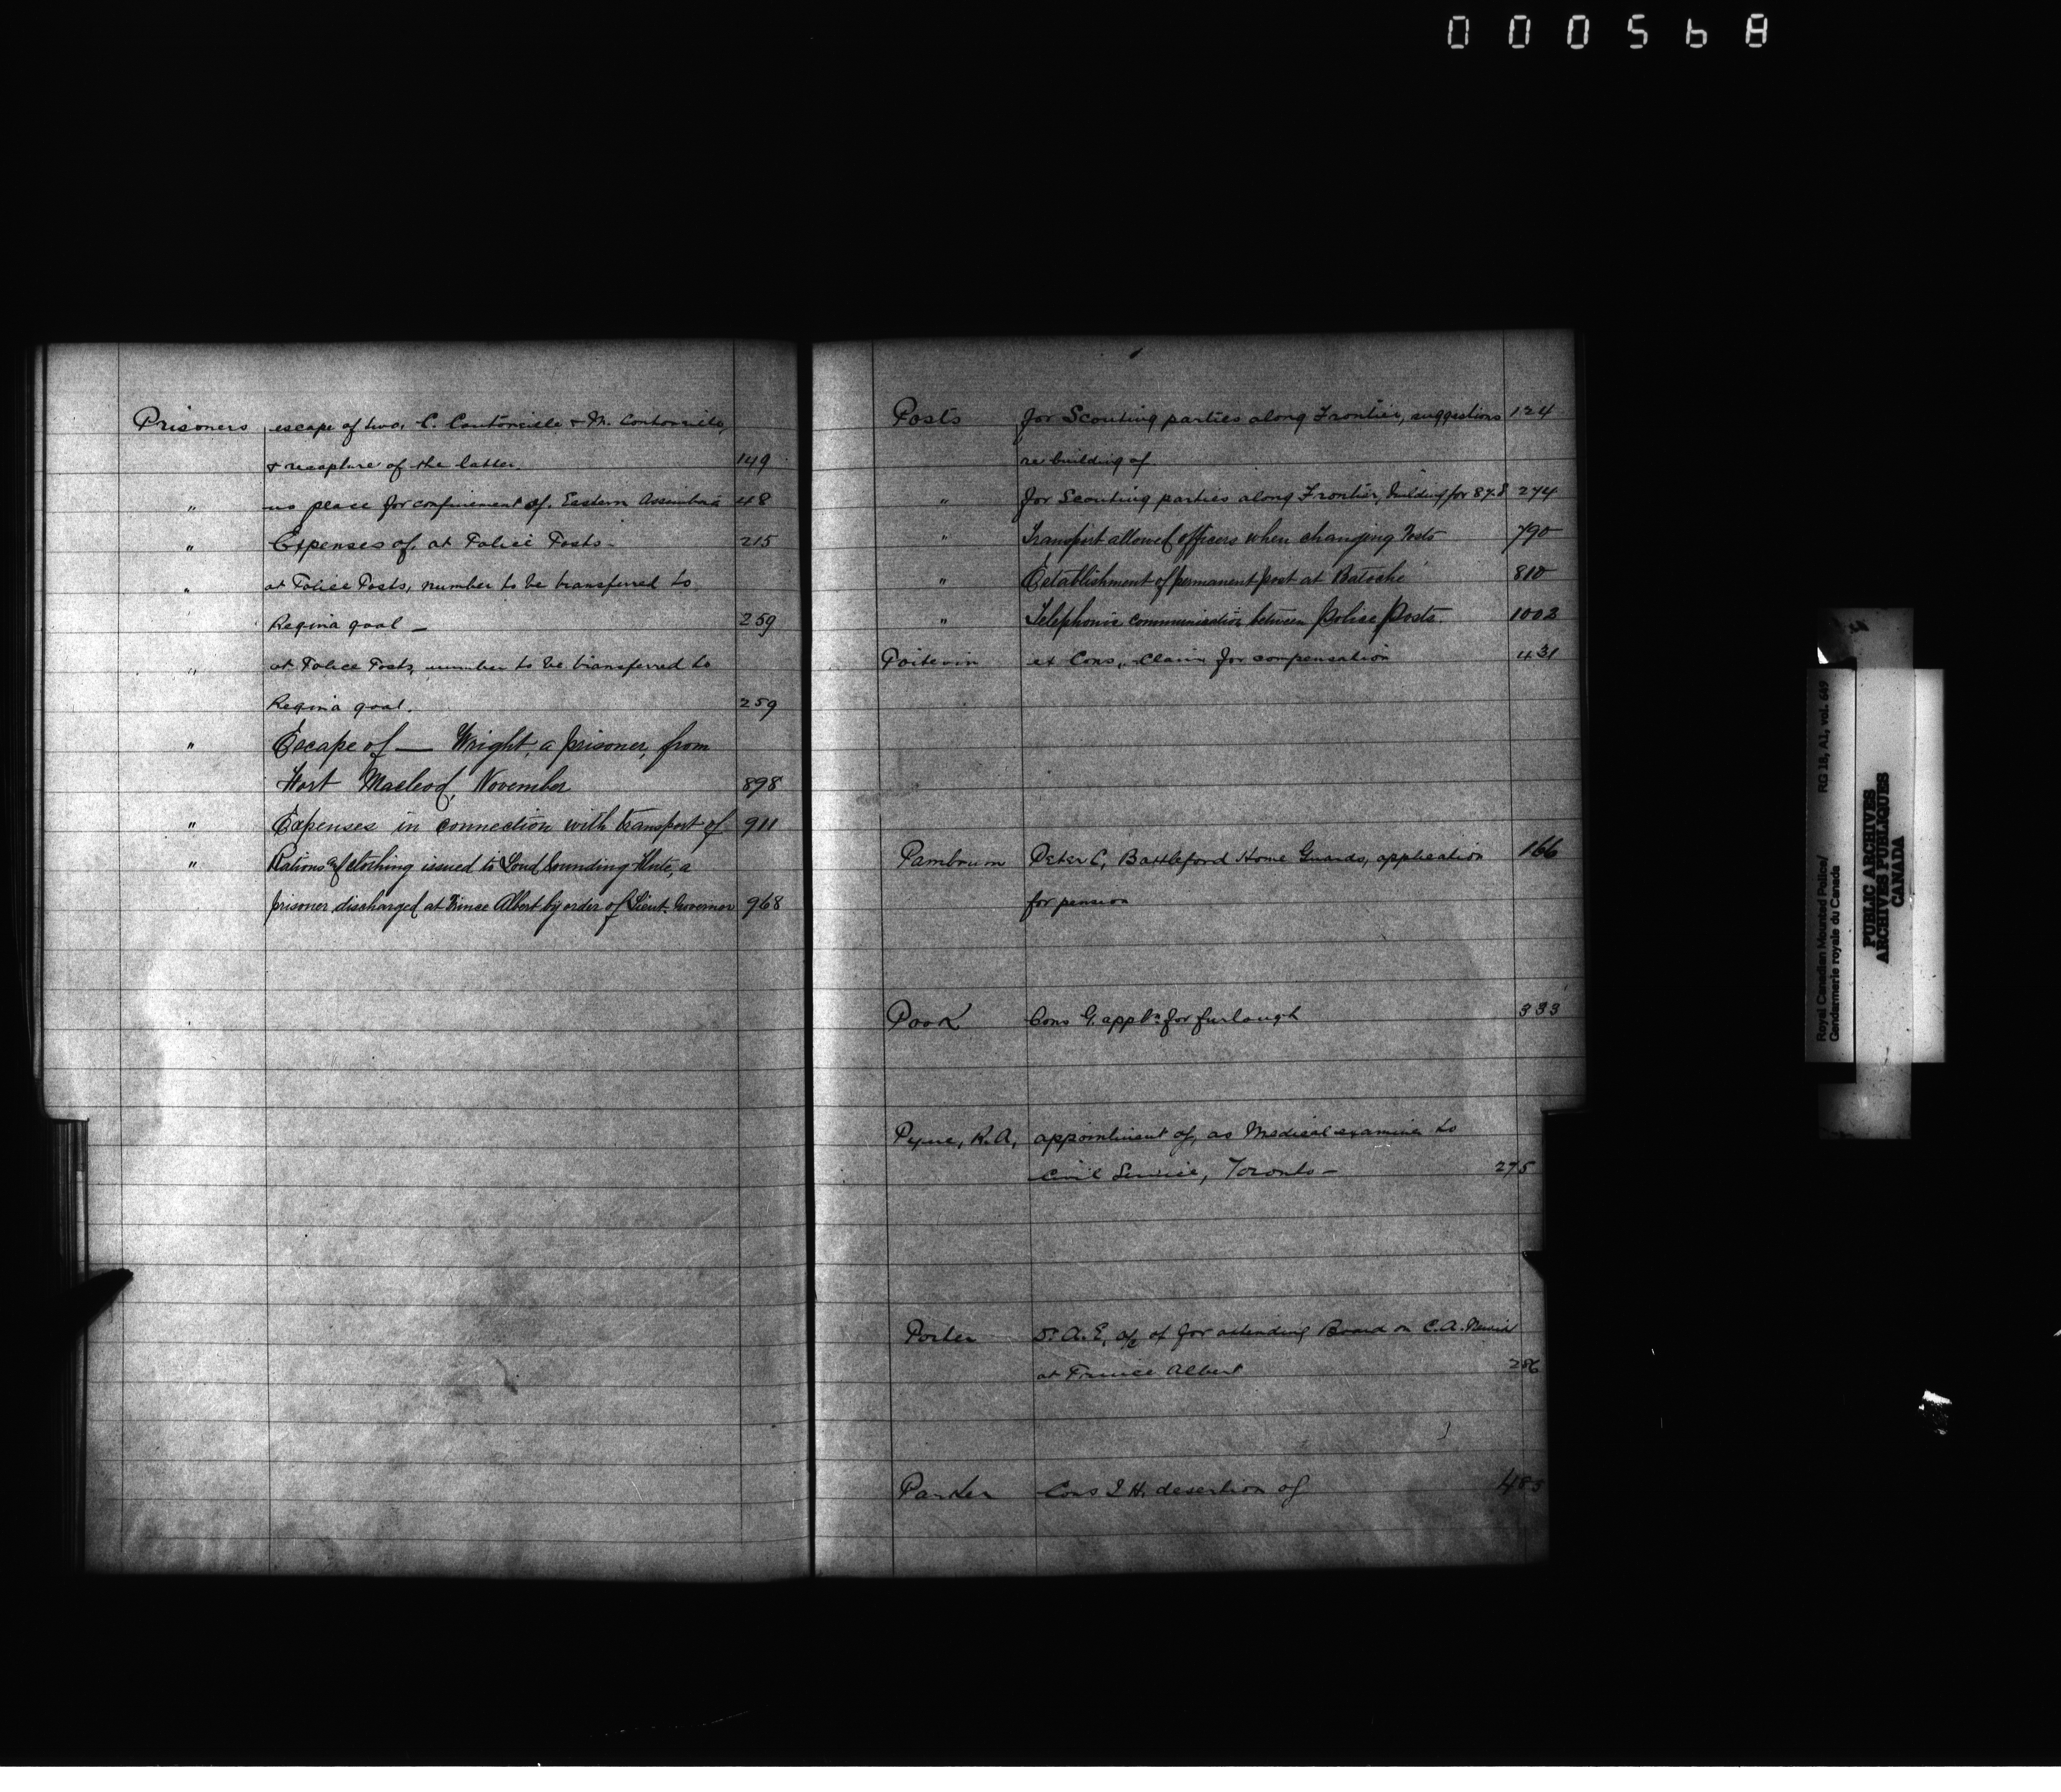 000568
Prisoners escape of two, C. & M.
& recapture of the latter. 149
" no place for confinement of, Eastern Assiniboia 48
" Expenses of, at Police Posts - 215
" at Police Posts, number to be transferred to
Regina gaol — 259
" at Police Posts, number to be transferred to
Regina gaol. 259
" Escape of — Wright, a prisoner, from
Fort Macleod, November 898
" Expenses in connection with transport of 911
" Rations & clothing issued to Loud Sounding Flute, a
prisoner discharged at Prince Albert by order of Lieut. Governor 968
Posts for Scouting parties along Frontier, suggestions 124
re building of
" for Scouting parties along Frontier, building for 87.8 274
" Transport allowed officers when changing Posts 790
" Establishment of permanent post at Batoche 810
" Telephonic communication between Police Posts. 1002
Poitevin ex Cons., claim for compensation 431
Pambrum Peter C, Battleford Home Guards, application 166
for pension
Pook Cons G. appln for furlough 333
Pyne, R.A, appointment of, as Medical examiner to
Civil Service, Toronto — 275
Porter Dr. A.E, a/c of for attending Board on C.A.
at Prince Albert 286
Parker Cons I H. desertion of 485
Royal Canadian Mounted Police/ RG 18, A1, vol. 649
Gendarmerie royale du Canada
PUBLIC ARCHIVES
ARCHIVES PUBLIQUES
CANADA